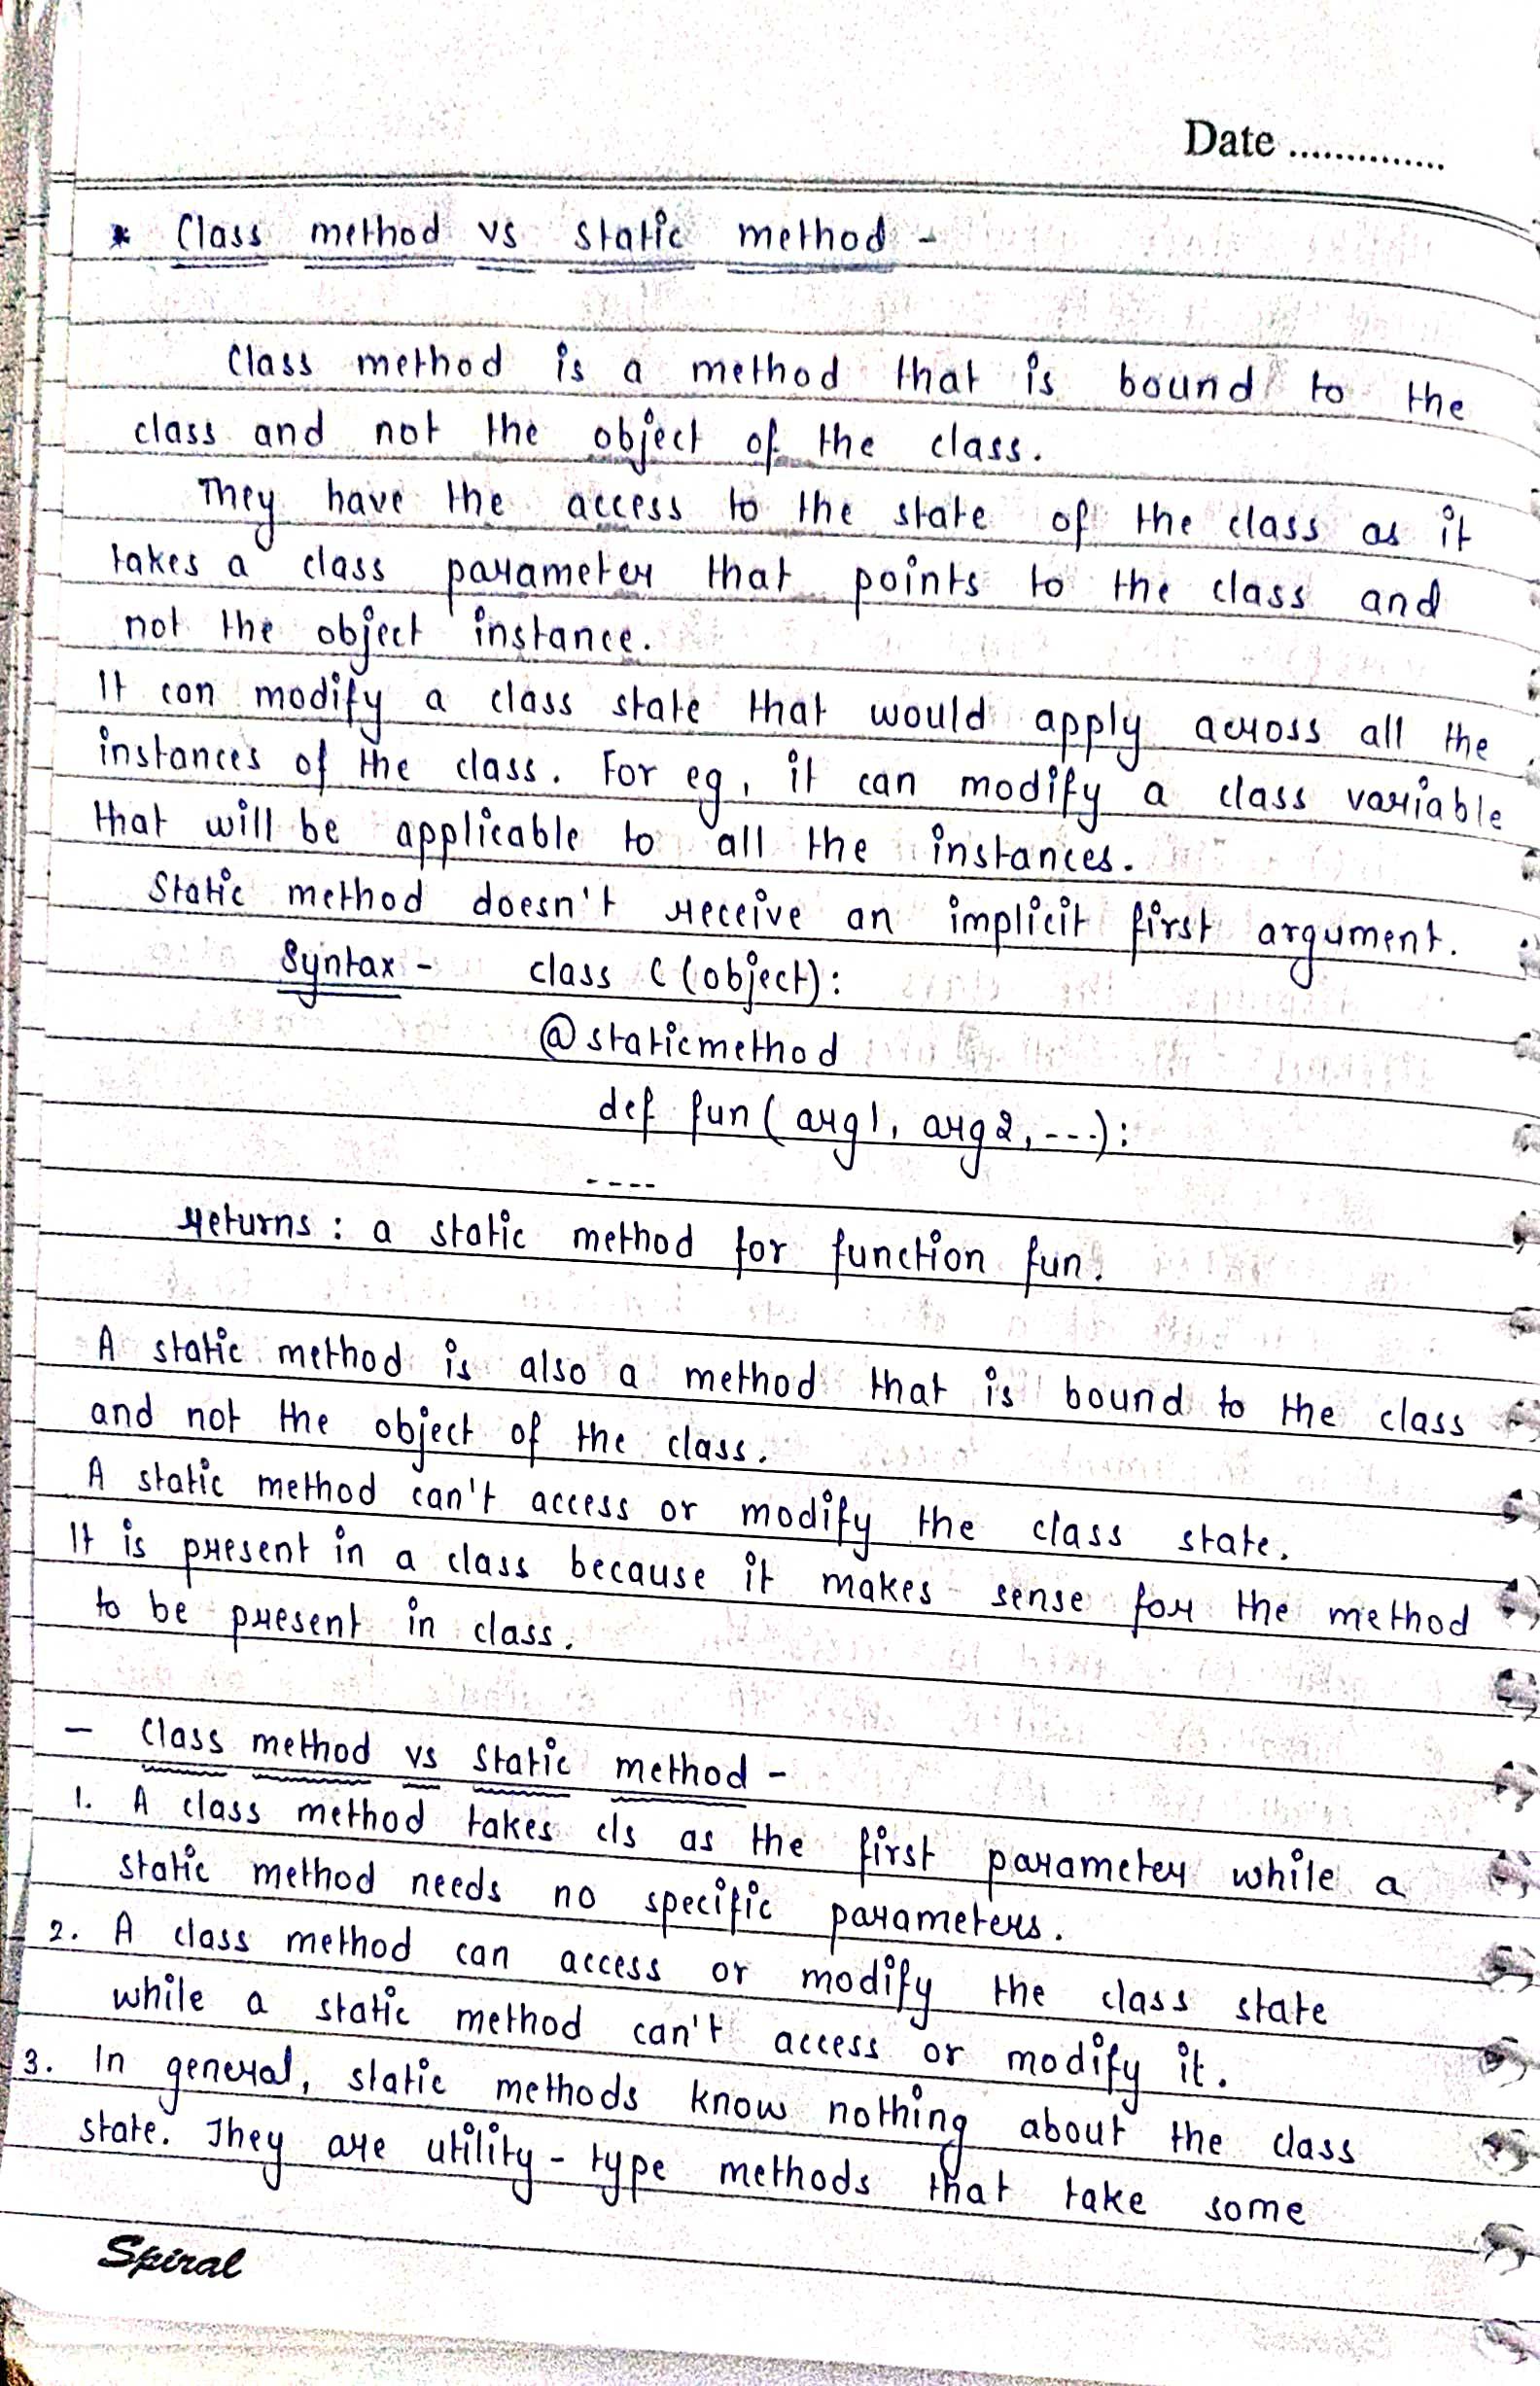 Date ..............
* Class method vs static method -
Class method is a method that is bound to the
class and not the object of the class.
They have the access to the state of the class as it
takes a class parameter that points to the class and
not the object instance.
It can modify a class state that would apply across all the
instances of the class. For eg, it can modify a class variable
that will be applicable to all the instances.
Static method doesn't receive an implicit first argument.
Syntax - class C (object):
@staticmethod
def fun(arg1, arg2, ---):
----
returns : a static method for function fun.
A static method is also a method that is bound to the class
and not the object of the class.
A static method can't access or modify the class state.
It is present in a class because it makes sense for the method
to be present in class.
- Class method vs Static method -
1. A class method takes cls as the first parameter while a
static method needs no specific parameters.
2. A class method can access or modify the class state
while a static method can't access or modify it.
3. In general, static methods know nothing about the class
state. They are utility-type methods that take some
Spiral